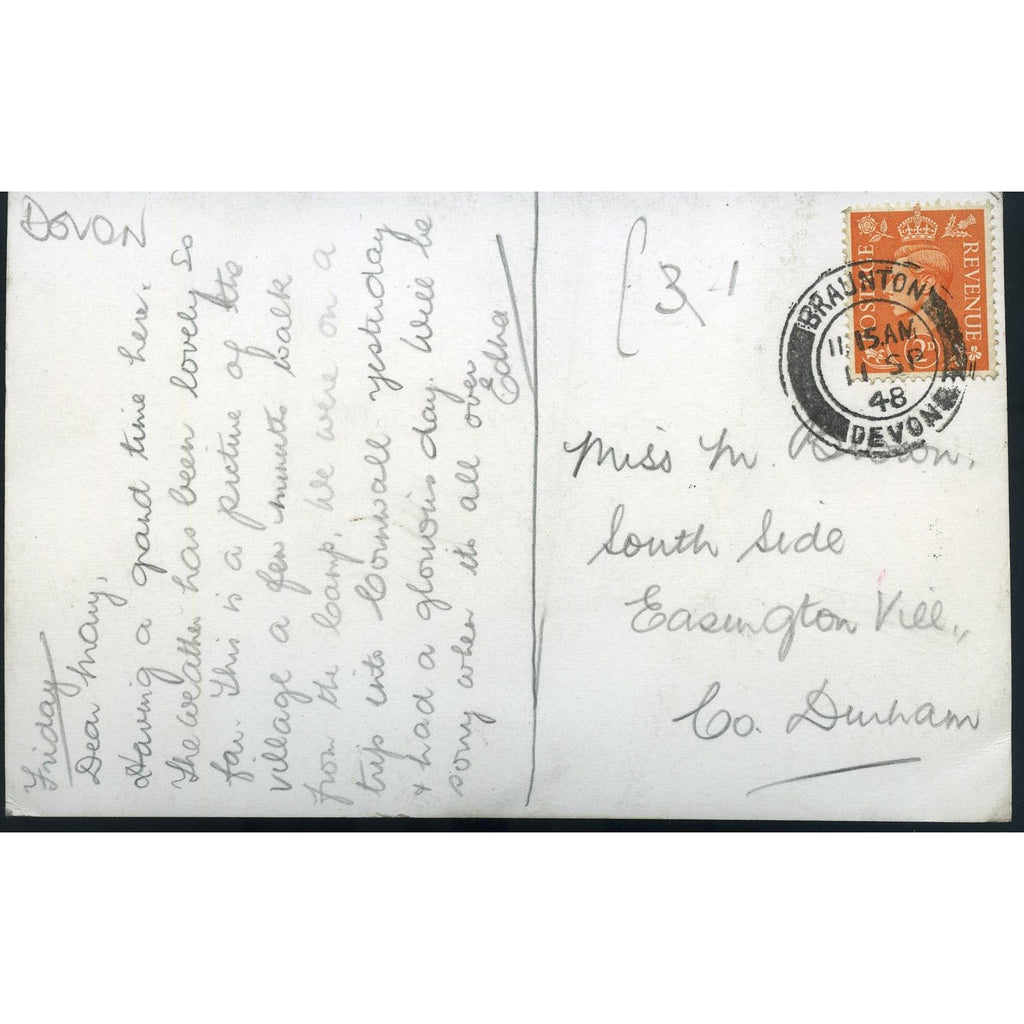 DEVON
Friday
Dear Mary,
Having a grand time here.
The weather has been lovely so
far. This is a picture of the
village a few minute walk
from the camp. We were on a
trip into Cornwall yesterday
+ had a glorious day. Will be
sorry when its all over
Edna
POSTAGE REVENUE
2D
BRAUNTON
11.15AM
11 SP
48
DEVON
Miss M.
South Side
Easington Vill.,
Co. Durham